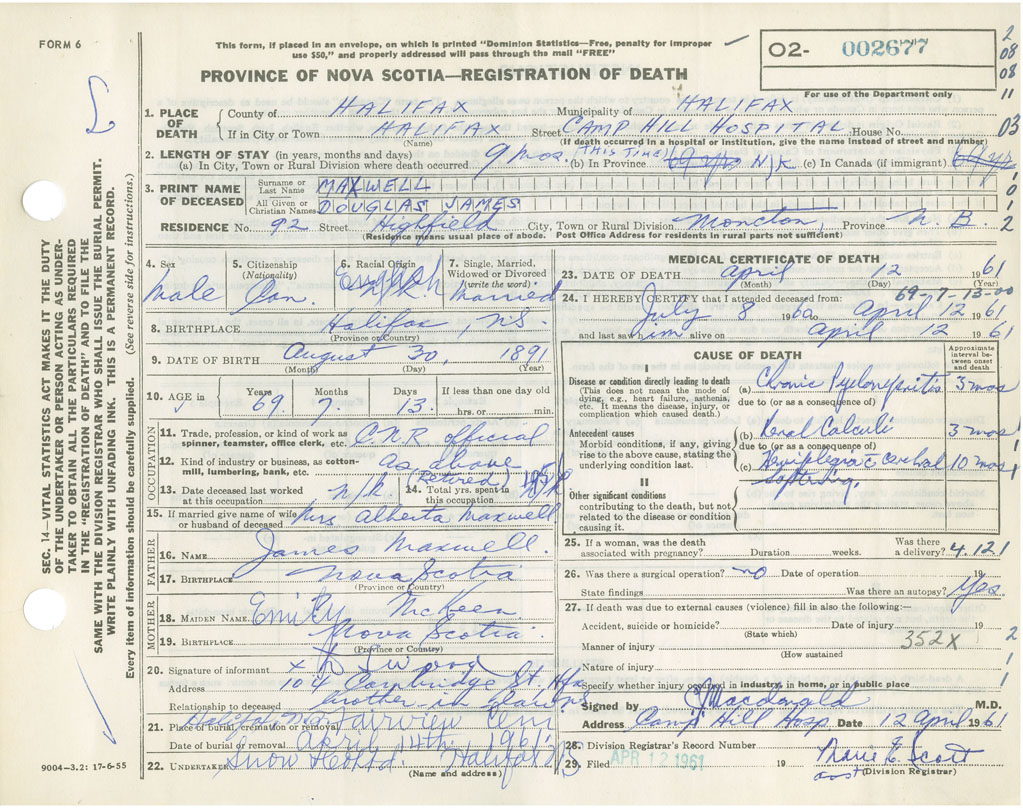 FORM 6
This form, if placed in an envelope, on which is printed "Dominion Statistics—Free, penalty for improper
use $50," and properly addressed will pass through the mail "FREE"
PROVINCE OF NOVA SCOTIA—REGISTRATION OF DEATH
O2- 002677
For use of the Department only
2
08
08
11
03
1
0
1
2
SEC. 14—VITAL STATISTICS ACT MAKES IT THE DUTY
OF THE UNDERTAKER OR PERSON ACTING AS UNDER-
TAKER TO OBTAIN ALL THE PARTICULARS REQUIRED
IN THE "REGISTRATION OF DEATH" AND TO FILE THE
SAME WITH THE DIVISION REGISTRAR WHO SHALL ISSUE THE BURIAL PERMIT.
WRITE PLAINLY WITH UNFADING INK. THIS IS A PERMANENT RECORD.
Every item of information should be carefully supplied. (See reverse side for instructions.)
1. PLACE OF DEATH
County of HALIFAX Municipality of HALIFAX
If in City or Town HALIFAX Street CAMP HILL HOSPITAL House No.
(Name) (If death occurred in a hospital or institution, give the name instead of street and number)
2. LENGTH OF STAY (in years, months and days)
(a) In City, Town or Rural Division where death occurred 9 mos (THIS TIME) (b) In Province N/K (c) In Canada (if immigrant)
3. PRINT NAME OF DECEASED
Surname or Last Name MAXWELL
All Given or Christian Names DOUGLAS JAMES
RESIDENCE No. 92 Street Highfield City, Town or Rural Division Moncton, Province N. B.
(Residence means usual place of abode. Post Office Address for residents in rural parts not sufficient)
4. Sex
Male
5. Citizenship
(Nationality)
Can.
6. Racial Origin
English
N.K.
7. Single, Married,
Widowed or Divorced
(write the word)
Married
8. BIRTHPLACE Halifax, N.S.
(Province or Country)
9. DATE OF BIRTH August 30, 1891
(Month) (Day) (Year)
10. AGE in
Years 69. Months 7. Days 13. If less than one day old
hrs. or min.
OCCUPATION
11. Trade, profession, or kind of work as
spinner, teamster, office clerk, etc. CNR official
12. Kind of industry or business, as cotton-
mill, lumbering, bank, etc. as above
(Retired)
13. Date deceased last worked
at this occupation N/K
14. Total yrs. spent in
this occupation
15. If married give name of wife
or husband of deceased Mrs Alberta Maxwell
FATHER
16. NAME James Maxwell.
17. BIRTHPLACE Nova Scotia
(Province or Country)
MOTHER
18. MAIDEN NAME Emily McKeen
19. BIRTHPLACE Nova Scotia.
(Province or Country)
20. Signature of informant x
Address 104 Cambridge St. Hfx
Relationship to deceased brother in law NS
21. Place of burial, cremation or removal Halifax N.S. Fairview Cem
Date of burial or removal April 14th. 1961.
22. UNDERTAKER Snow Halifax NS
(Name and address)
9004—3.2: 17-6-55
MEDICAL CERTIFICATE OF DEATH
23. DATE OF DEATH April 12 1961
(Month) (Day) (Year)
69-7-13-00
24. I HEREBY CERTIFY that I attended deceased from:
July 8 1960 April 12 1961
and last saw him alive on April 12 1961
CAUSE OF DEATH
Approximate
interval be-
tween onset
and death
I
Disease or condition directly leading to death
(This does not mean the mode of
dying, e.g., heart failure, asthenia,
etc. It means the disease, injury, or
complication which caused death.)
(a) Chronic Pyelonephritis 3 mos
due to (or as a consequence of)
Antecedent causes
Morbid conditions, if any, giving
rise to the above cause, stating the
underlying condition last.
(b) Renal Calculi 3 mos
due to (or as a consequence of)
(c) Hemiplegia c̄ cerebral 10 mos
softening.
II
Other significant conditions
contributing to the death, but not
related to the disease or condition
causing it.
25. If a woman, was the death
associated with pregnancy? Duration weeks. Was there
a delivery? 4.121
26. Was there a surgical operation? no Date of operation 19
State findings Was there an autopsy? Yes.
27. If death was due to external causes (violence) fill in also the following:—
Accident, suicide or homicide? Date of injury 19
(State which)
Manner of injury 352X 2
(How sustained
Nature of injury 1
Specify whether injury occurred in industry, in home, or in public place 1
Signed by J Macdonald M.D.
Address Camp Hill Hosp Date 12 April 1961
28. Division Registrar's Record Number
29. Filed APR 12 1961 19
Marie E. Scott
asst (Division Registrar)